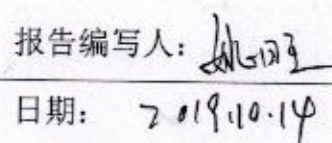 报告编写人:
日期: 2019.10.14